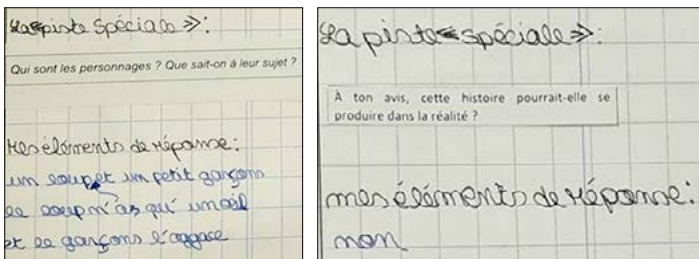 La « piste Spéciale » :
Qui sont les personnages ? Que sait-on à leur sujet ?
Mes éléments de réponse :
un loup et un petit garçons
le loup n'as qu' un œil
et le garçons l'aggace
La piste « spéciale » :
À ton avis, cette histoire pourrait-elle se
produire dans la réalité ?
mes éléments de réponse :
non